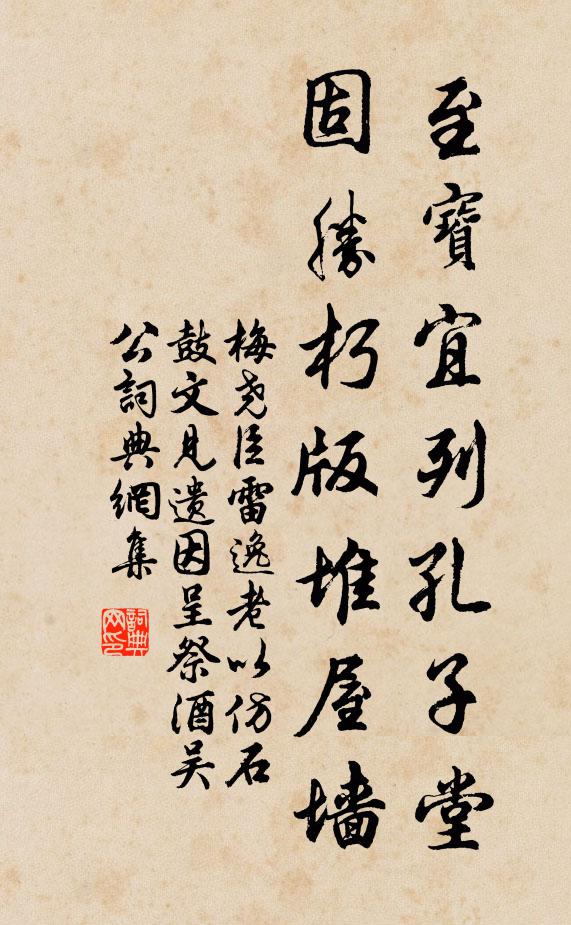 至寶宜列孔子堂
固勝朽版堆屋墙
梅尧臣雷逸老以仿石
鼓文見遗因呈祭酒吴
公詞典網集
詞典
网印